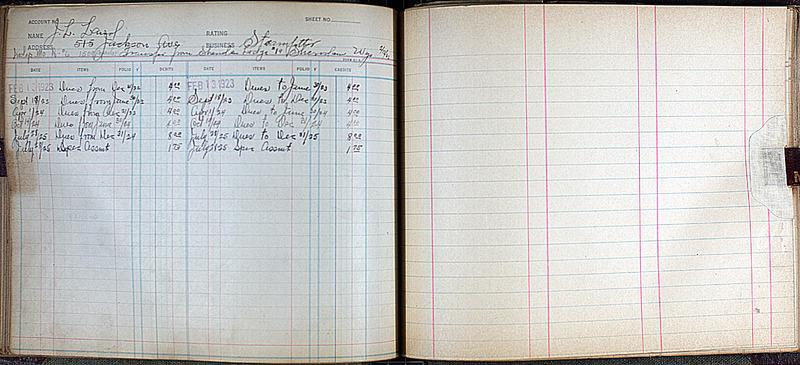 ACCOUNT NO. SHEET NO.
NAME J. L. RATING
ADDRESS 515 Jackson Ave BUSINESS Steamfitter
Transfer from Lodge Sheridan Wyo
DATE ITEMS FOLIO √ DEBITS DATE ITEMS FOLIO √ CREDITS
FEB 13 1923 Dues from Dec 31/22 4 00 FEB 13 1923 Dues to June 30/23 4 00
Sept 18/23 Dues from June 30/23 4 00 Sept 18/23 Dues to Dec 31/23 4 00
Apr 1/24 Dues from Dec 31/23 4 00 Apr 1/24 Dues to June 30/24 4 00
Dues from June 30/24 4 00 Dues to Dec 31/24 4 00
July 28/25 Dues from Dec 31/24 8 00 July 28/25 Dues to Dec 31/25 8 00
July 28/25 Spec Assmt 1 75 July 28/25 Spec Assmt 1 75